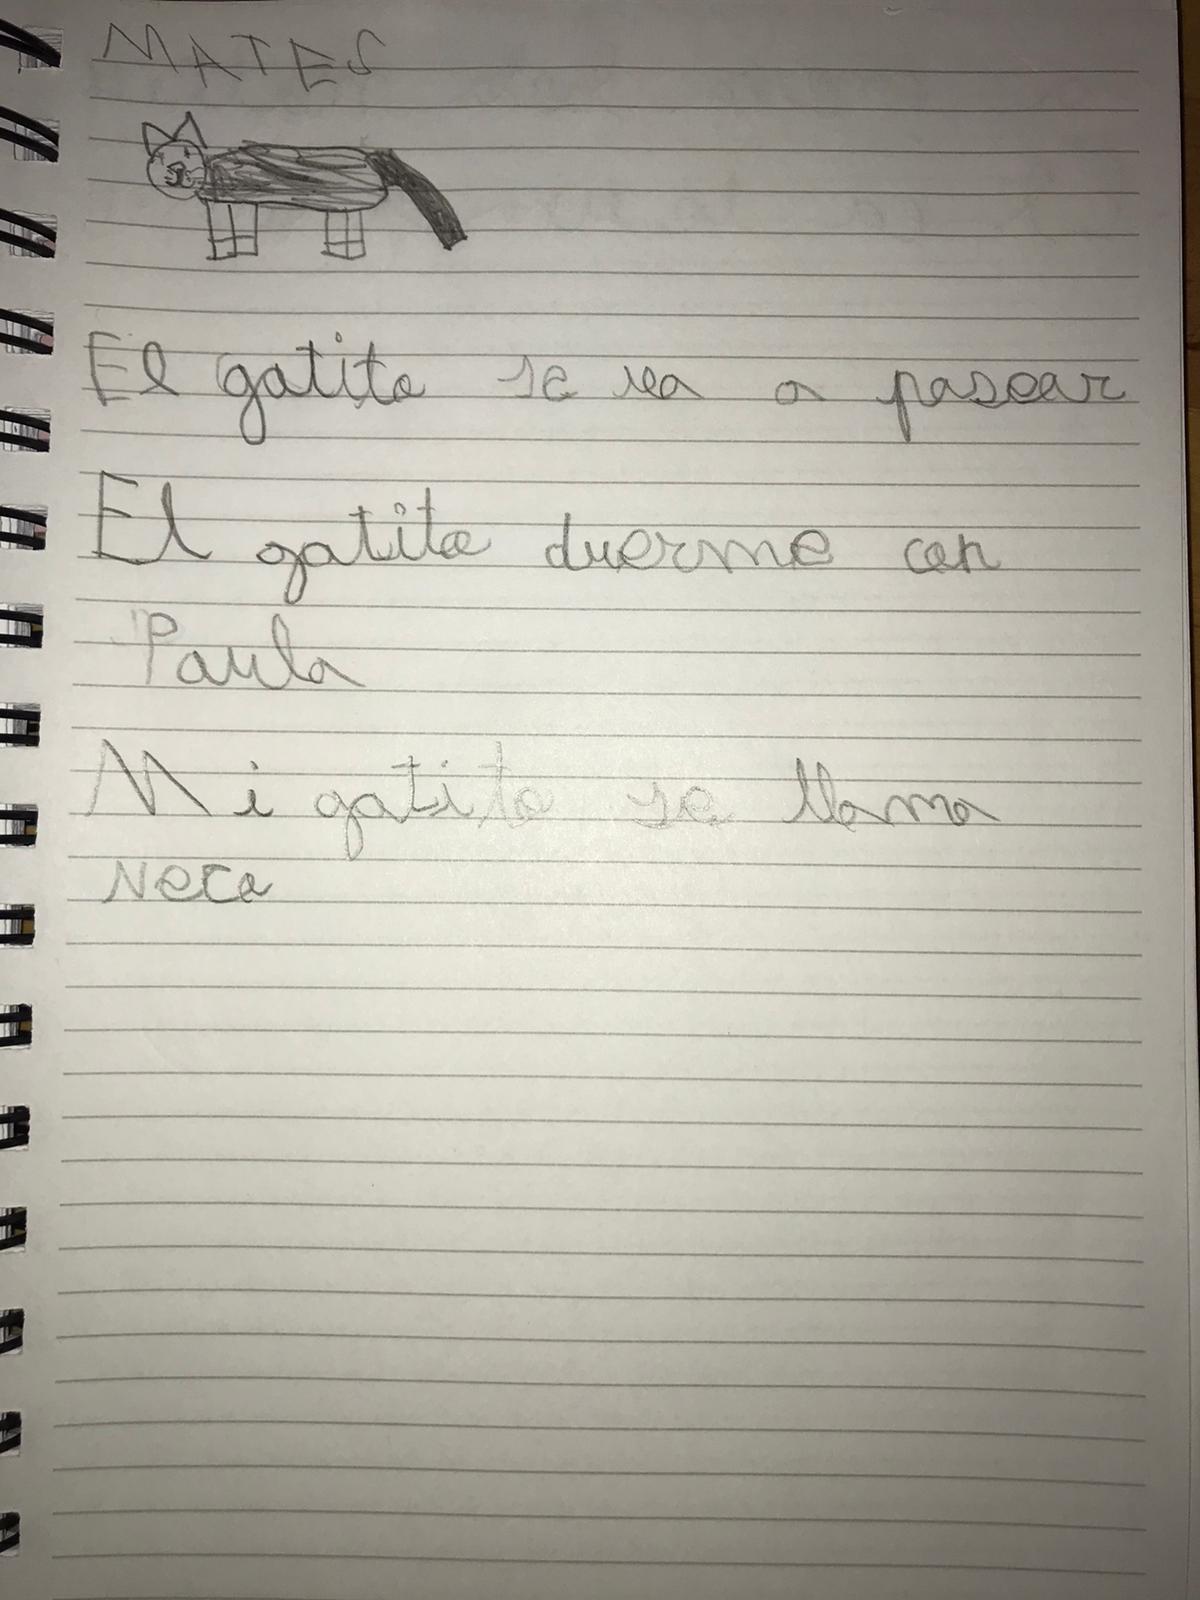 MATES
El gatito se va a pasear
El gatito duerme con
Paula
Mi gatito se llama
Neca